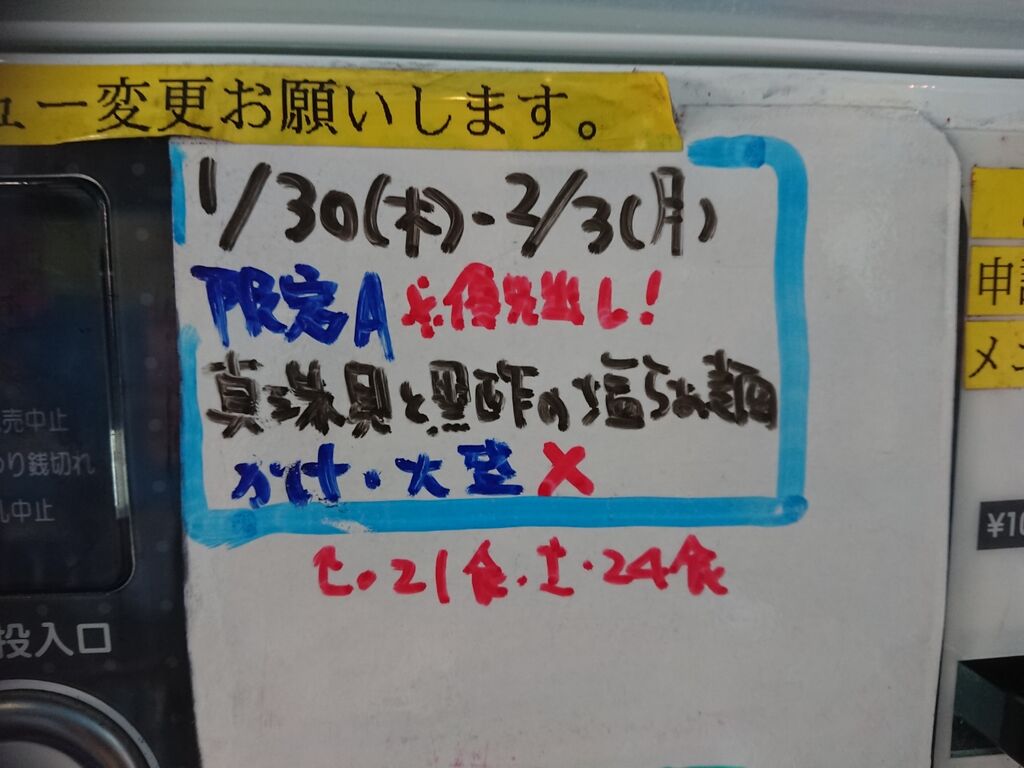 ュー変更お願いします。
1/30(木)-2/3(月)
限定A ※優先出し!
真珠貝と黒酢の塩らぁ麺
かけ・大盛 X
ヒ・21食.土・24食
売中止
り銭切れ
札中止
投入口
申請
メニ
¥10